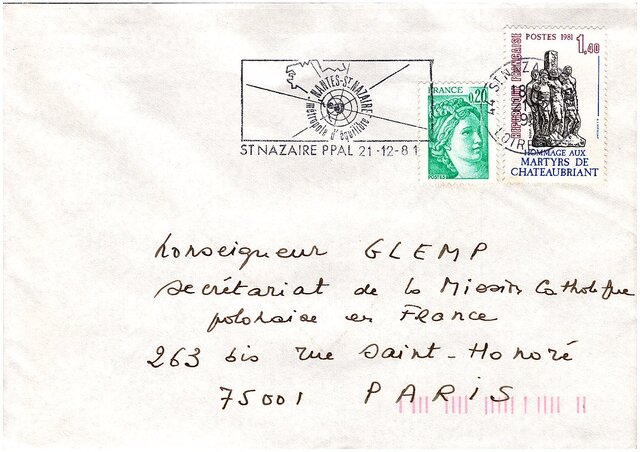 NANTES-ST NAZAIRE
métropole d'équilibre
ST NAZAIRE PPAL 21-12-81
FRANCE
0,20
POSTES 1981 1,40
REPUBLIQUE FRANÇAISE
44 ST NAZA
LOIRE
HOMMAGE AUX
MARTYRS DE
CHATEAUBRIANT
Monseigneur GLEMP
secrétariat de la Mission Catholique
polonaise en France
263 bis rue Saint-Honoré
75001 PARIS